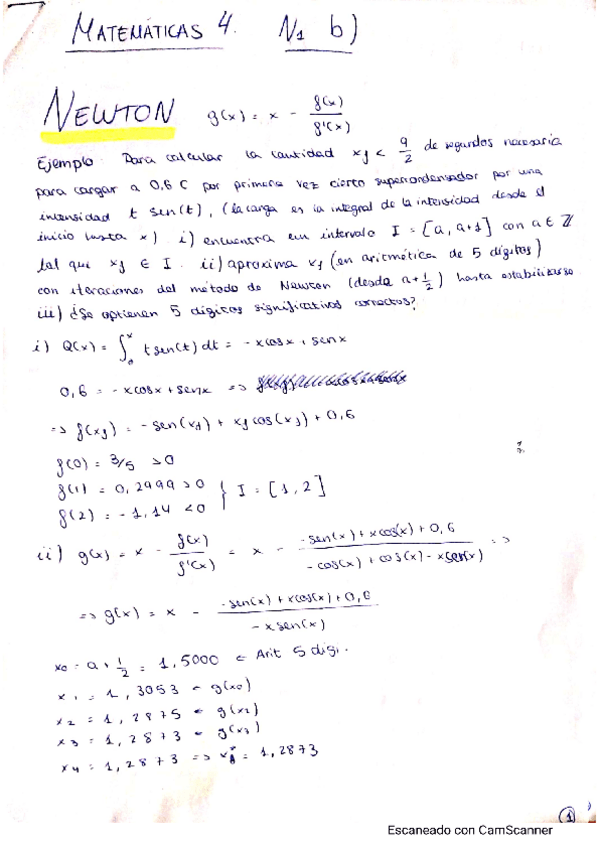 MATEMÁTICAS 4. N1 b)
NEWTON g(x) = x - f(x) / f'(x)
Ejemplo: Para calcular la cantidad xf < 9/2 de segundos necesaria
para cargar a 0,6 C por primera vez cierto supercondensador por una
intensidad t sen(t), (la carga es la integral de la intensidad desde el
inicio hasta x) i) encuentra un intervalo I = [a, a+1] con a ∈ ℤ
tal que xf ∈ I. ii) aproxima xf (en aritmética de 5 dígitos)
con iteraciones del método de Newton (desde a+1/2) hasta estabilizarse
iii) ¿Se obtienen 5 dígitos significativos correctos?
i) Q(x) = ∫₀ˣ t sen(t) dt = -x cosx + senx
0,6 = -x cosx + senx =>
=> f(xf) = -sen(xf) + xf cos(xf) + 0,6
f(0) = 3/5 >0
f(1) = 0,2999 >0 } I = [1,2]
f(2) = -1,14 <0
ii) g(x) = x - f(x) / f'(x) = x - (-sen(x) + x cos(x) + 0,6) / (-cos(x) + cos(x) - x sen(x)) =>
=> g(x) = x - (-sen(x) + x cos(x) + 0,6) / (-x sen(x))
x0 = a + 1/2 = 1,5000 ← Arit 5 digi.
x1 = 1,3053 ← g(x0)
x2 = 1,2875 ← g(x2)
x3 = 1,2873 ← g(x3)
x4 = 1,2873 => xf* = 1,2873
1
Escaneado con CamScanner